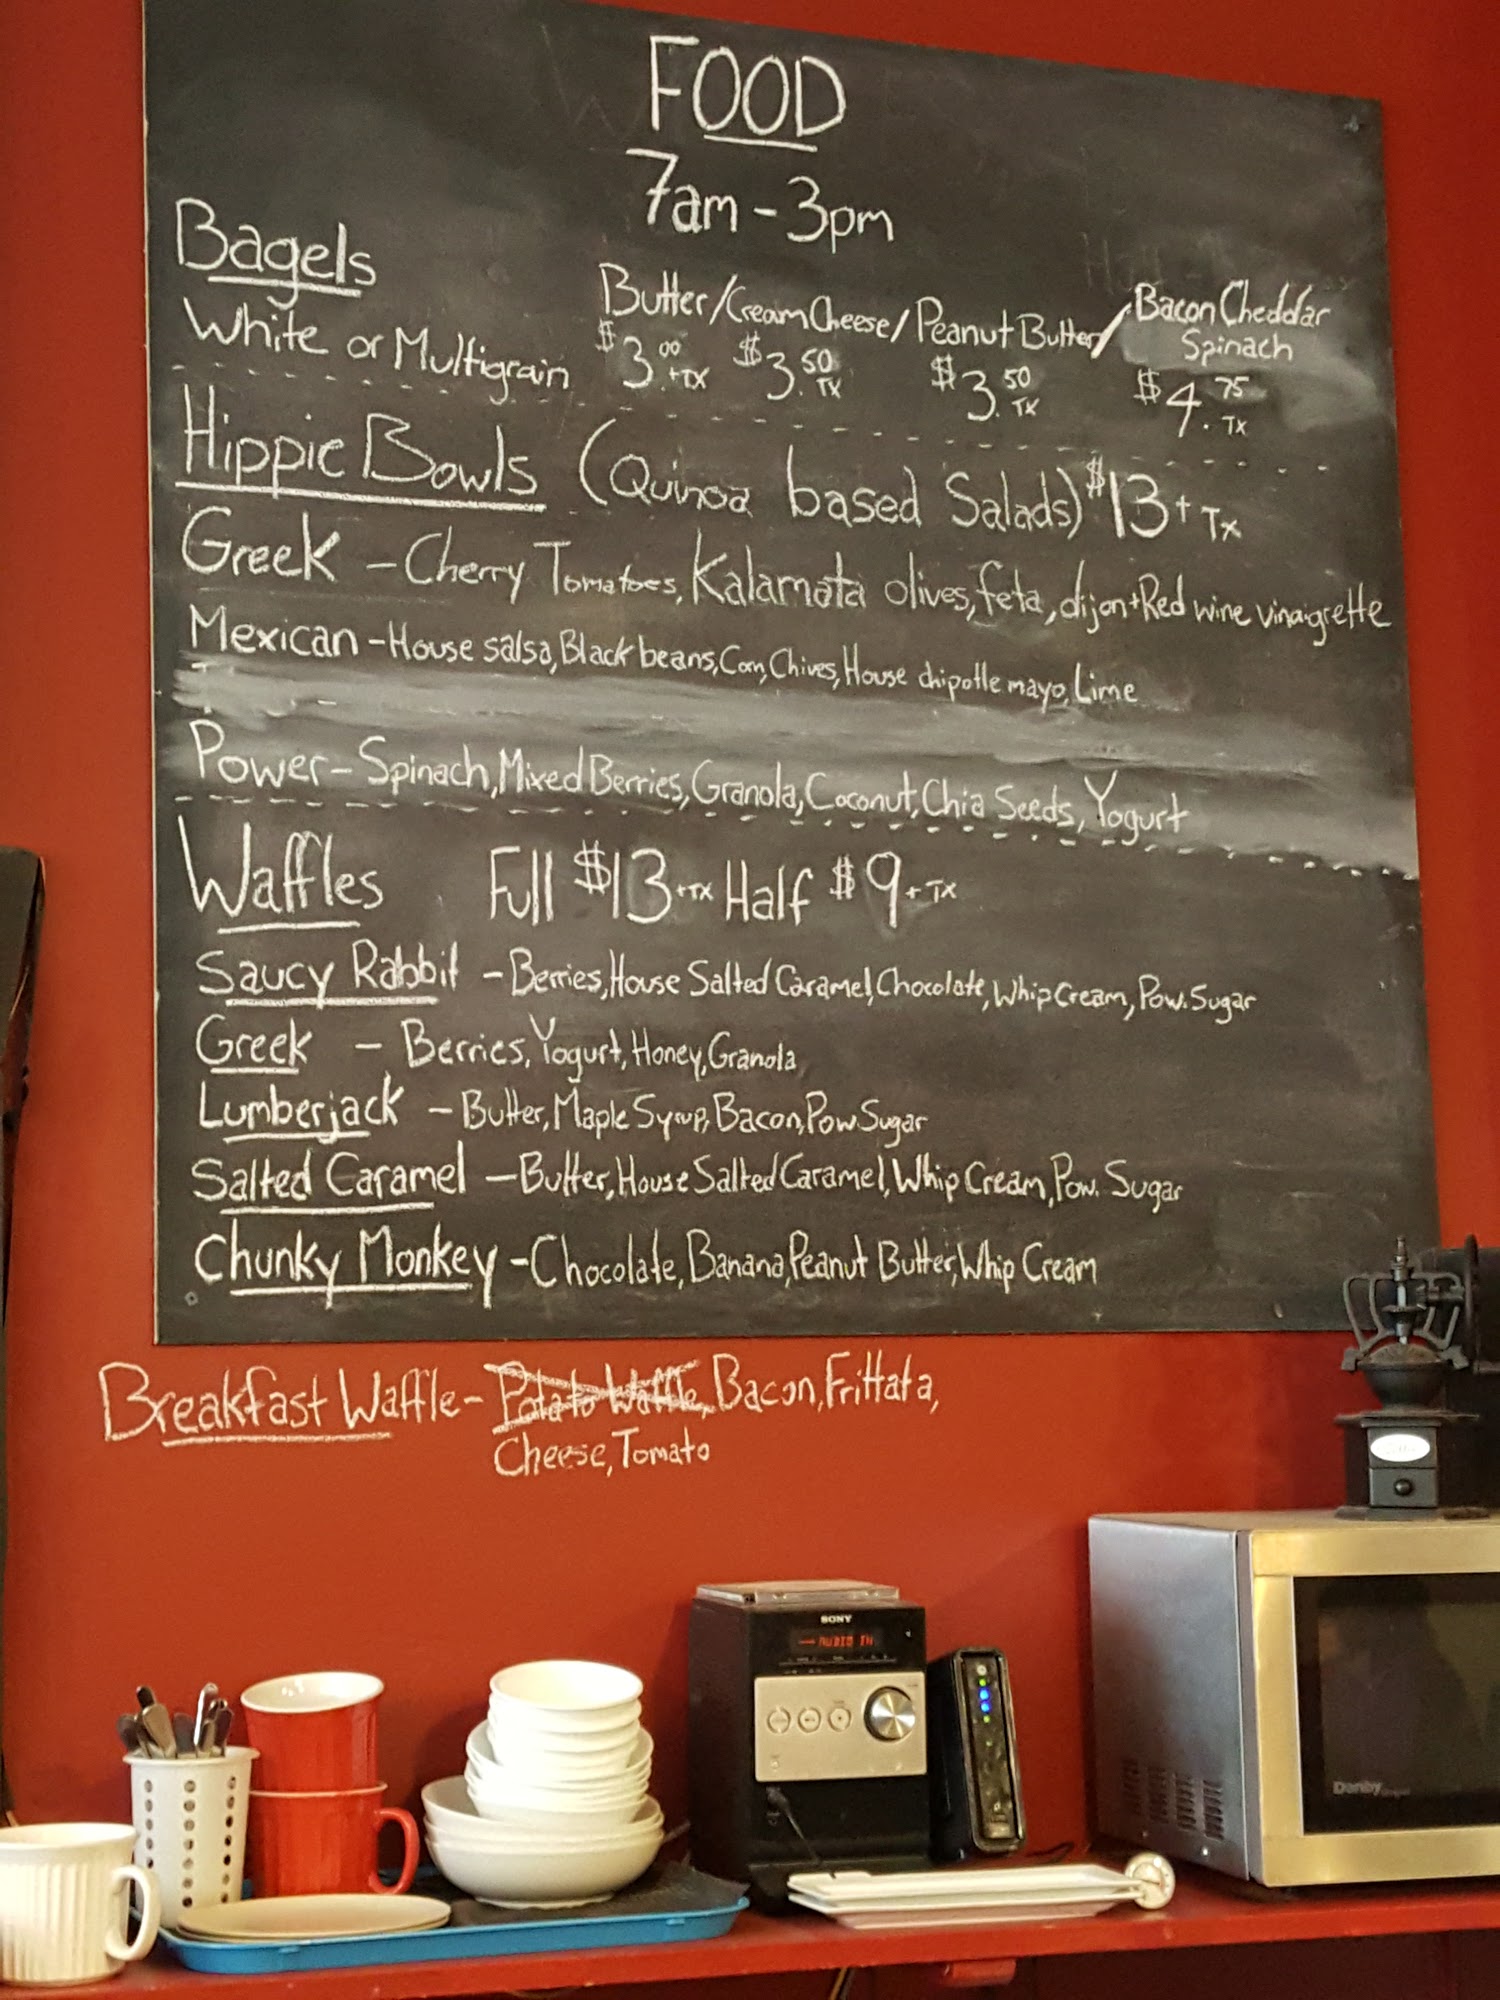 FOOD
7am - 3pm
Bagels
White or Multigrain
Butter/Cream Cheese/Peanut Butter/Bacon Cheddar
Spinach
$3.00+TX $3.50 TX $3.50 TX $4.75 TX
Hippie Bowls (Quinoa based Salads) $13+ Tx
Greek - Cherry Tomatoes, Kalamata olives, feta, dijon+Red wine vinaigrette
Mexican - House salsa, Black beans, Corn, Chives, House chipotle mayo, Lime
Power - Spinach, Mixed Berries, Granola, Coconut, Chia Seeds, Yogurt
Waffles Full $13+TX Half $9+TX
Saucy Rabbit - Berries, House Salted Caramel, Chocolate, Whip Cream, Pow. Sugar
Greek - Berries, Yogurt, Honey, Granola
Lumberjack - Butter, Maple Syrup, Bacon, Pow. Sugar
Salted Caramel - Butter, House Salted Caramel, Whip Cream, Pow. Sugar
Chunky Monkey - Chocolate, Banana, Peanut Butter, Whip Cream
Breakfast Waffle - Potato Waffle, Bacon, Frittata,
Cheese, Tomato
SONY
AUDIO IN
Danby